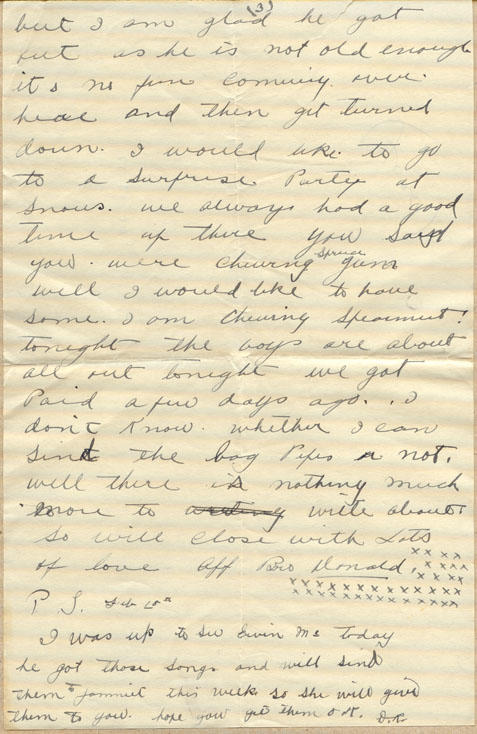 (3)
but I am glad he got
but as he is not old enough
it s no fun comming over
heae and then get turned
down. I would like to go
to a Surprise Party at
Snows. we always had a good
time up there you said
you were chewing spruce gum
well I would like to have
some. I am Chewing Spearmint!
tonight the boys are about
all out tonight we got
Paid a few days ago. I
don't Know whether I can
Sind the bag Pipes or not.
well there is nothing much
more to writing write about
So will close with Lots
of love Aff Bro Donald. x x x x
x x x x
x x x x
x x x x x x x x x x x
x x x x x x x x x x
P. S. Feb
I was up to See Ewin Mc today
he got those songs and will sind
them to this week so she will give
them to you. hope you get them O.K. D.K